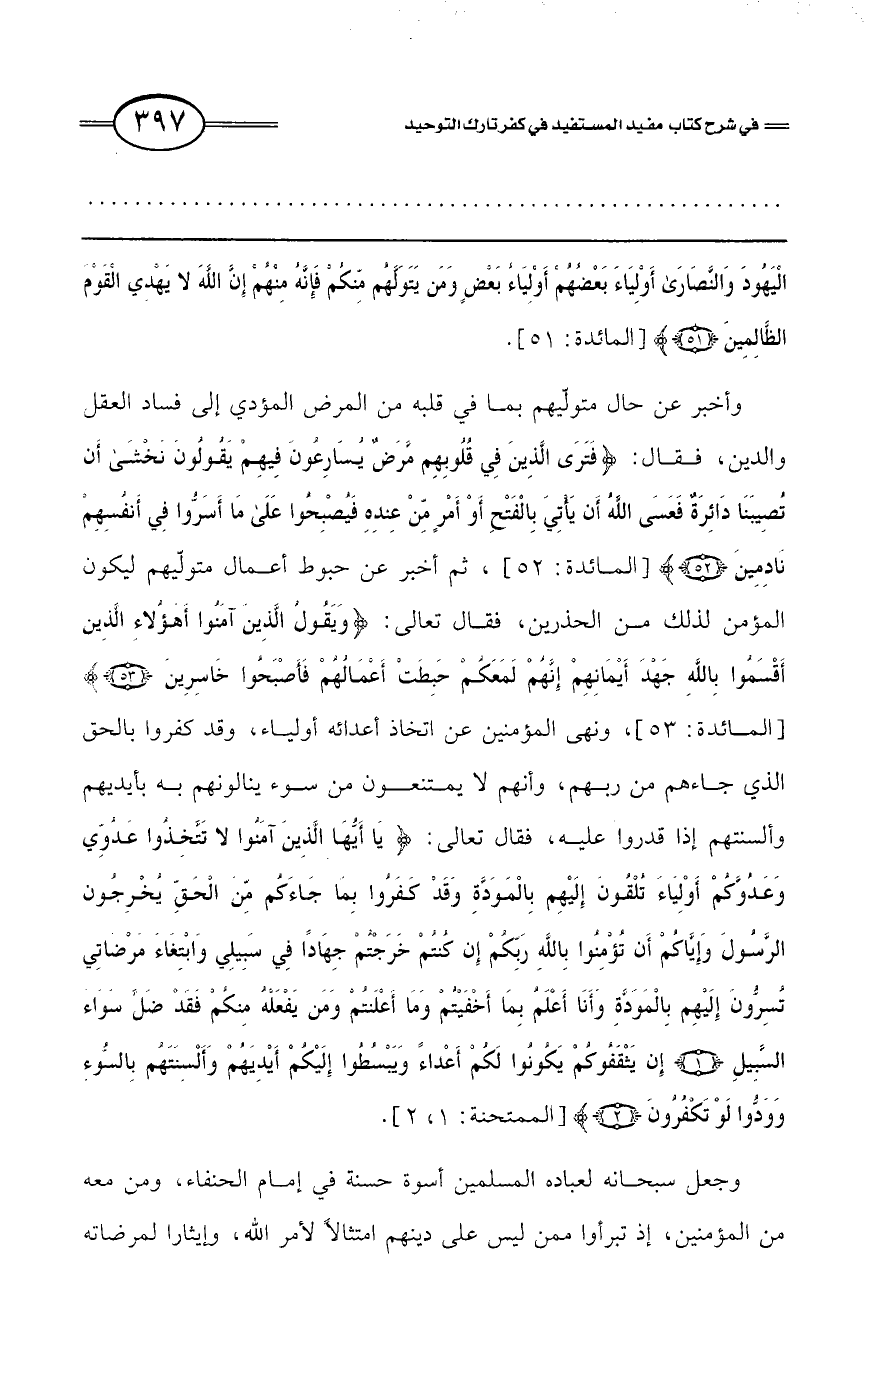 في شرح كتاب مفيد المستفيد في كفر تارك التوحيد ٣٩٧
الْيَهُودَ وَالنَّصَارَىٰ أَوْلِيَاءَ بَعْضُهُمْ أَوْلِيَاءُ بَعْضٍ وَمَن يَتَوَلَّهُم مِّنكُمْ فَإِنَّهُ مِنْهُمْ إِنَّ اللَّهَ لا يَهْدِي الْقَوْمَ
الظَّالِمِينَ ﴿٥١﴾﴾ [المائدة: ٥١].
وأخبر عن حال متولّيهم بما في قلبه من المرض المؤدي إلى فساد العقل
والدين، فقال: ﴿فَتَرَى الَّذِينَ فِي قُلُوبِهِم مَّرَضٌ يُسَارِعُونَ فِيهِمْ يَقُولُونَ نَخْشَىٰ أَن
تُصِيبَنَا دَائِرَةٌ فَعَسَى اللَّهُ أَن يَأْتِيَ بِالْفَتْحِ أَوْ أَمْرٍ مِّنْ عِندِهِ فَيُصْبِحُوا عَلَىٰ مَا أَسَرُّوا فِي أَنفُسِهِمْ
نَادِمِينَ ﴿٥٢﴾﴾ [المائدة: ٥٢] ، ثم أخبر عن حبوط أعمال متولّيهم ليكون
المؤمن لذلك من الحذرين، فقال تعالى: ﴿وَيَقُولُ الَّذِينَ آمَنُوا أَهَؤُلاءِ الَّذِينَ
أَقْسَمُوا بِاللَّهِ جَهْدَ أَيْمَانِهِمْ إِنَّهُمْ لَمَعَكُمْ حَبِطَتْ أَعْمَالُهُمْ فَأَصْبَحُوا خَاسِرِينَ ﴿٥٣﴾﴾
[المائدة: ٥٣]، ونهى المؤمنين عن اتخاذ أعدائه أولياء، وقد كفروا بالحق
الذي جاءهم من ربهم، وأنهم لا يمتنعون من سوء ينالونهم به بأيديهم
وألسنتهم إذا قدروا عليه، فقال تعالى: ﴿يَا أَيُّهَا الَّذِينَ آمَنُوا لا تَتَّخِذُوا عَدُوِّي
وَعَدُوَّكُمْ أَوْلِيَاءَ تُلْقُونَ إِلَيْهِم بِالْمَوَدَّةِ وَقَدْ كَفَرُوا بِمَا جَاءَكُم مِّنَ الْحَقِّ يُخْرِجُونَ
الرَّسُولَ وَإِيَّاكُمْ أَن تُؤْمِنُوا بِاللَّهِ رَبِّكُمْ إِن كُنتُمْ خَرَجْتُمْ جِهَادًا فِي سَبِيلِي وَابْتِغَاءَ مَرْضَاتِي
تُسِرُّونَ إِلَيْهِم بِالْمَوَدَّةِ وَأَنَا أَعْلَمُ بِمَا أَخْفَيْتُمْ وَمَا أَعْلَنتُمْ وَمَن يَفْعَلْهُ مِنكُمْ فَقَدْ ضَلَّ سَوَاءَ
السَّبِيلِ ﴿١﴾ إِن يَثْقَفُوكُمْ يَكُونُوا لَكُمْ أَعْدَاءً وَيَبْسُطُوا إِلَيْكُمْ أَيْدِيَهُمْ وَأَلْسِنَتَهُم بِالسُّوءِ
وَوَدُّوا لَوْ تَكْفُرُونَ ﴿٢﴾﴾ [الممتحنة: ١، ٢].
وجعل سبحانه لعباده المسلمين أسوة حسنة في إمام الحنفاء، ومن معه
من المؤمنين، إذ تبرأوا ممن ليس على دينهم امتثالاً لأمر الله، وإيثارا لمرضاته